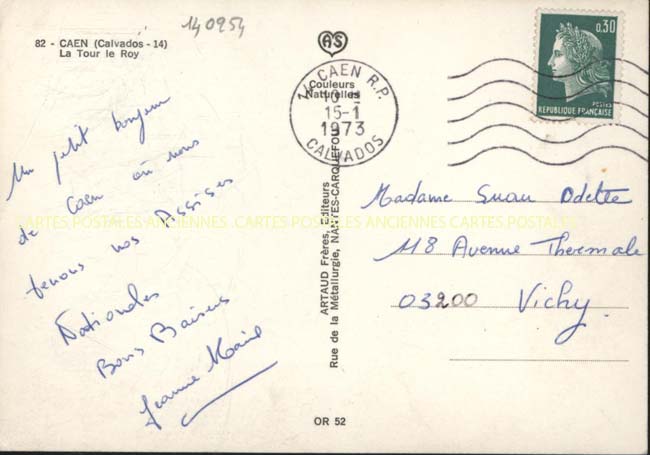 140954
82 - CAEN (Calvados - 14)
La Tour le Roy
AS
Couleurs
Naturelles
14 CAEN R.P.
15-1
1973
CALVADOS
0,30
POSTES
REPUBLIQUE FRANÇAISE
Un petit bonjour
de Caen où nous
tenons nos Assises
Nationales
Bons Baisers
Jeanne Marie
CARTES POSTALES ANCIENNES CARTES POSTALES ANCIENNES CARTES POSTALES
ARTAUD Frères, Editeurs
Rue de la Métallurgie, NANTES-CARQUEFOU
Madame Suau Odette
118 Avenue Thermale
03200 Vichy
OR 52